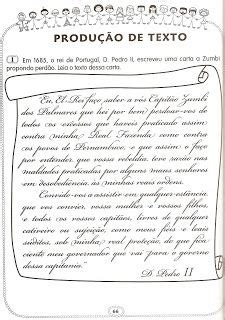 PRODUÇÃO DE TEXTO
1 Em 1685, o rei de Portugal, D. Pedro II, escreveu uma carta a Zumbi
propondo perdão. Leia o texto dessa carta.
Eu, El-Rei faço saber a vós Capitão Zumbi
dos Palmares que hei por bem perdoar-vos de
todos os excessos que haveis praticado assim
contra minha Real Fazenda como contra
os povos de Pernambuco, e que assim o faço
por entender que vossa rebeldia teve razão nas
maldades praticadas por alguns maus senhores
em desobediência às minhas reais ordens.
Convido-vos a assistir em qualquer estância
que vos convier, vossa mulher e vossos filhos,
e todos os vossos capitães, livres de qualquer
cativeiro ou sujeição, como meus fiéis e leais
súditos, sob minha real proteção, do que fica
ciente meu governador que vai para o governo
dessa capitania.
D. Pedro II
66